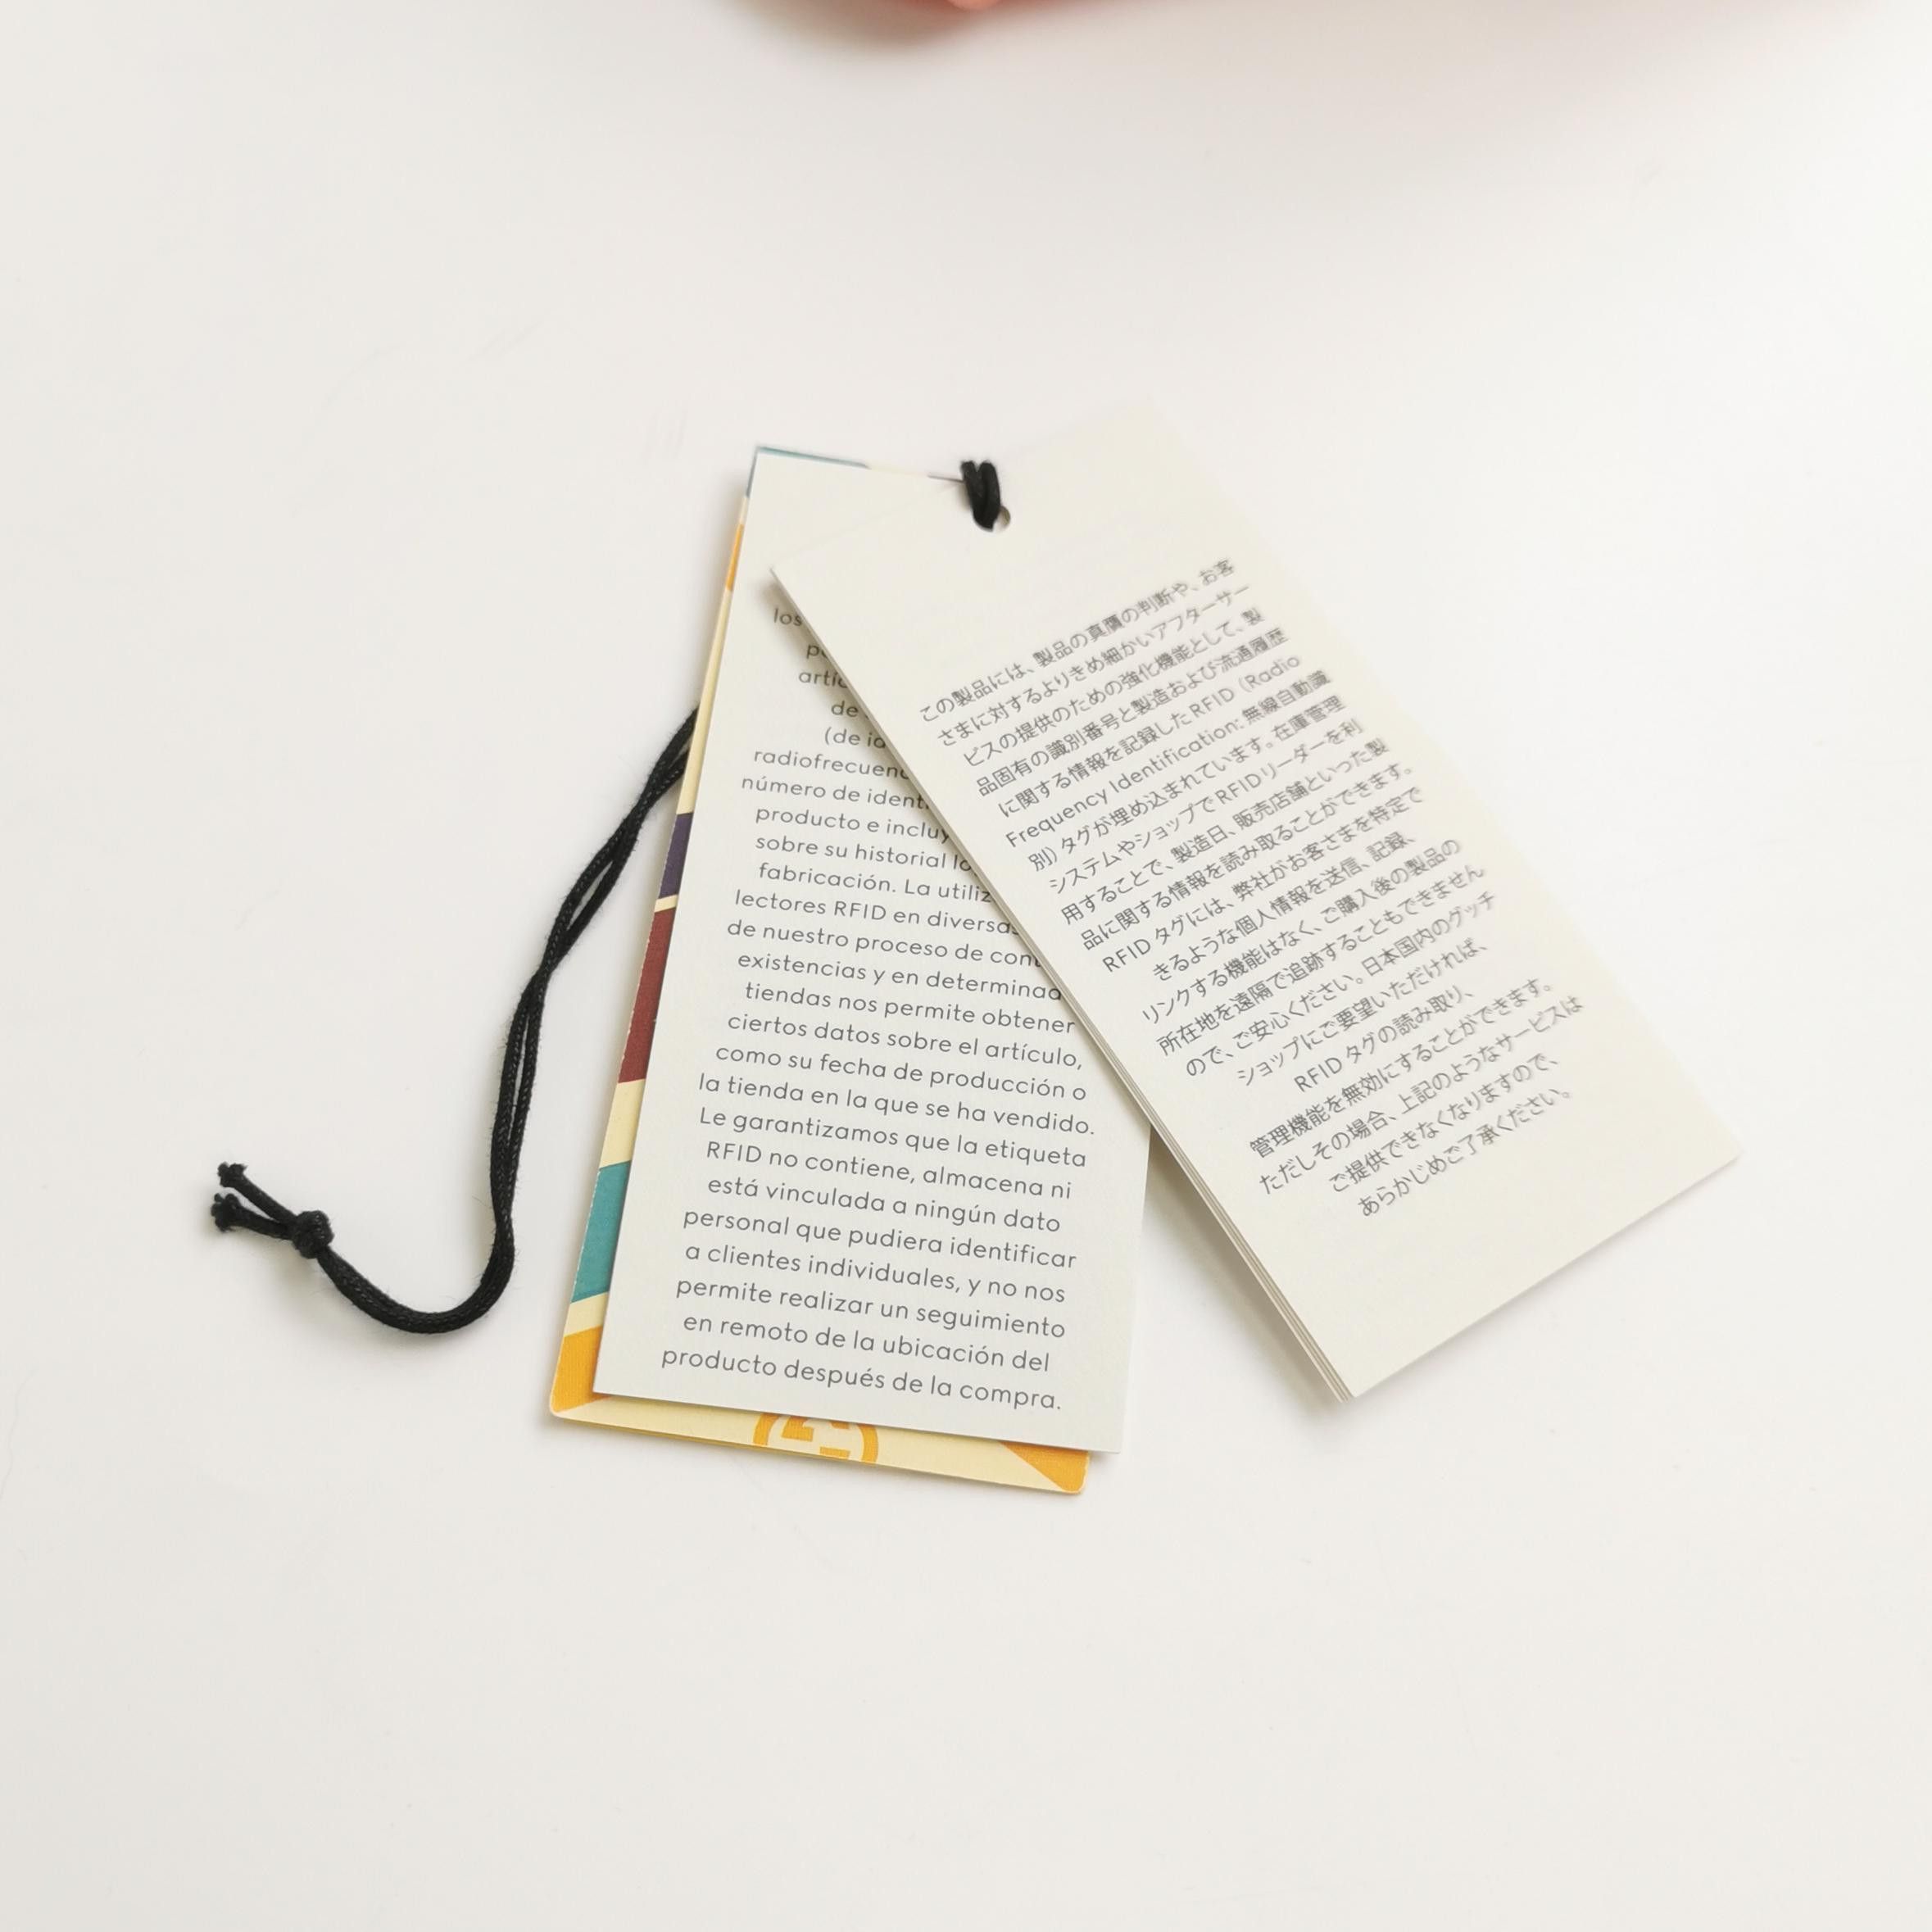 los
artíc
de
(de id
radiofrecuenc
número de ident
producto e incluy
sobre su historial lo
fabricación. La utiliz
lectores RFID en diversas
de nuestro proceso de cont
existencias y en determinad
tiendas nos permite obtener
ciertos datos sobre el artículo,
como su fecha de producción o
la tienda en la que se ha vendido.
Le garantizamos que la etiqueta
RFID no contiene, almacena ni
está vinculada a ningún dato
personal que pudiera identificar
a clientes individuales, y no nos
permite realizar un seguimiento
en remoto de la ubicación del
producto después de la compra.
この製品には、製品の真贋の判断や、お客
さまに対するよりきめ細かいアフターサー
ビスの提供のための強化機能として、製
品固有の識別番号と製造および流通履歴
に関する情報を記録したRFID（Radio
Frequency Identification; 無線自動識
別）タグが埋め込まれています。在庫管理
システムやショップでRFIDリーダーを利
用することで、製造日、販売店舗といった製
品に関する情報を読み取ることができます。
RFID タグには、弊社がお客さまを特定で
きるような個人情報を送信、記録、
リンクする機能はなく、ご購入後の製品の
所在地を遠隔で追跡することもできません
ので、ご安心ください。日本国内のグッチ
ショップにご要望いただければ、
RFID タグの読み取り、
管理機能を無効にすることができます。
ただしその場合、上記のようなサービスは
ご提供できなくなりますので、
あらかじめご了承ください。